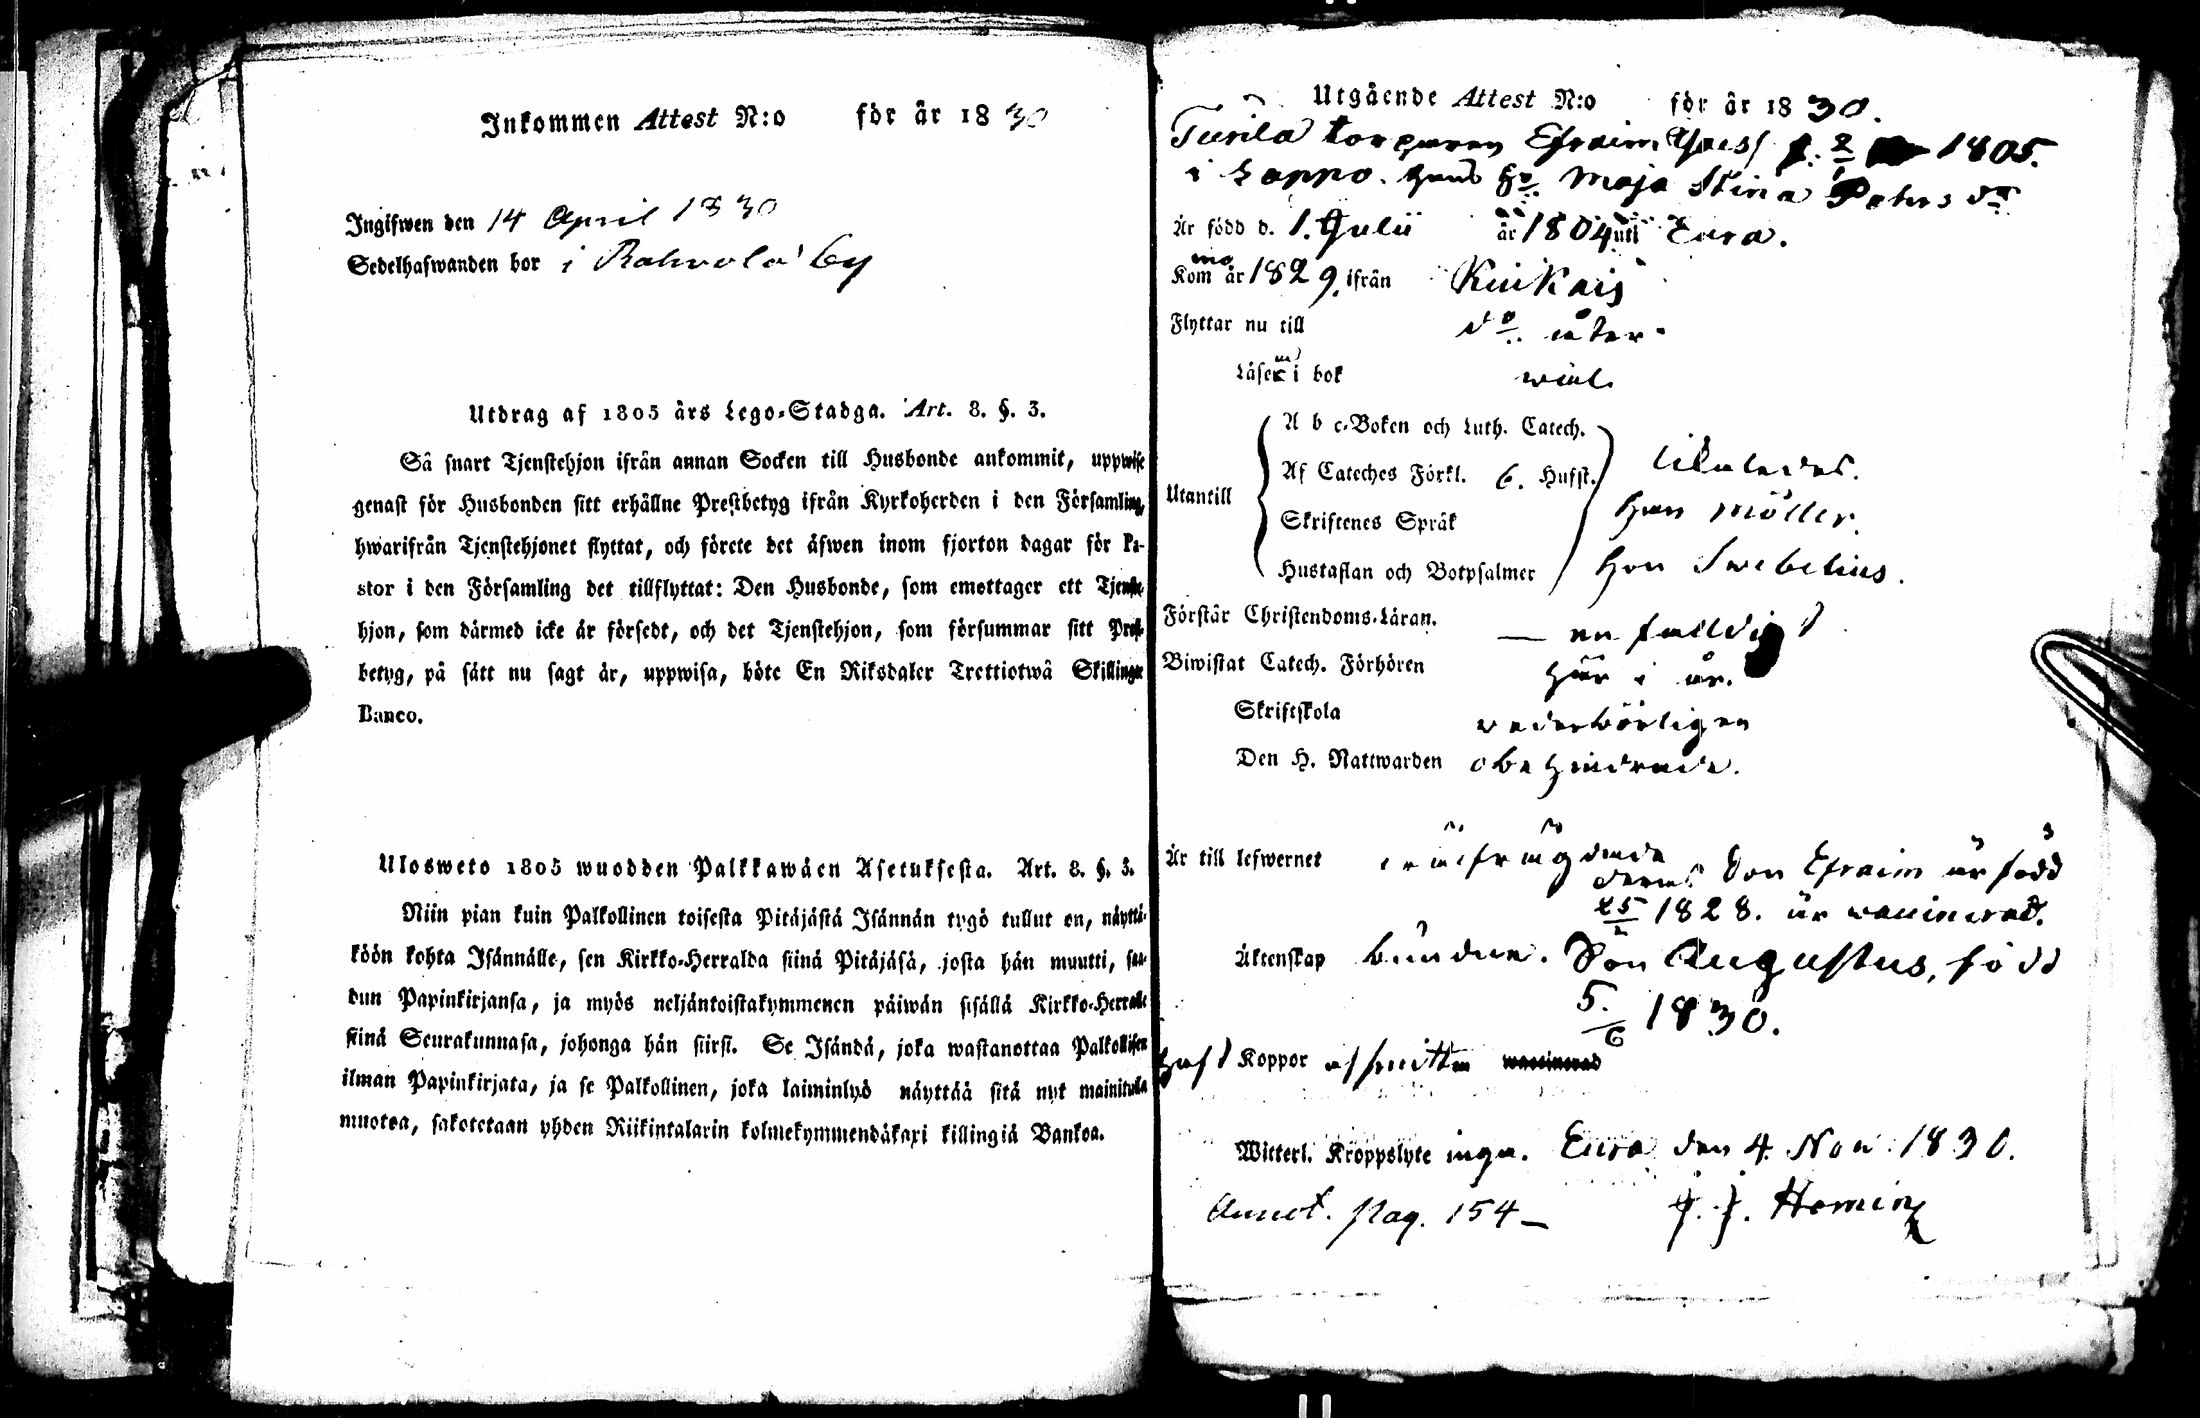 Inkommen Attest N:o för år 1830
Ingifwen den 14 April 1830
Sedelhafwanden bor i Rahvola by
Utdrag af 1805 års Lego-Stadga. Art. 8. §. 3.
Så snart Tjenstehjon ifrån annan Socken till Husbonde ankommit, uppwise
genast för Husbonden sitt erhållne Prestbetyg ifrån Kyrkoherden i den Församling,
hwarifrån Tjenstehjonet flyttat, och förete det äfwen inom fjorton dagar för Pa-
stor i den Församling det tillflyttat: Den Husbonde, som emottager ett Tjenste-
hjon, som därmed icke är försedt, och det Tjenstehjon, som försummar sitt Prest-
betyg, på sätt nu sagt är, uppwisa, böte En Riksdaler Trettiotwå Skillingar
Banco.
Ulosweto 1805 wuodden Palkkawäen Asetuksesta. Art. 8. §. 3.
Niin pian kuin Palkollinen toisesta Pitäjästä Isännän tygö tullut on, näyttä-
köön kohta Isännälle, sen Kirkko-Herralda siinä Pitäjäsä, josta hän muutti, saa-
dun Papinkirjansa, ja myös neljäntoistakymmenen päiwän sisällä Kirkko-Herralle
siinä Seurakunnasa, johonga hän siirsi. Se Isändä, joka wastanottaa Palkollisen
ilman Papinkirjata, ja se Palkollinen, joka laiminlyö näyttää sitä nyt mainitulla
muotoa, sakotetaan yhden Riikintalarin kolmekymmendäkaxi killingiä Bankoa.
Utgående Attest N:o för år 1830.
Turila torparen Efraim f. 2 1805.
i Lappo. Hans Hu. Maja Stina Petersdr
Är född d. 1. Julii år 1804 uti Eura.
Kommo år 1829. ifrån Kiukais
Flyttar nu till do. åter.
Läser i bok wäl.
A b c-Boken och Luth. Catech.
Af Cateches Förkl. 6. Hufst. likaledes.
Utantill
Skriftenes Språk han Möller.
Hustaflan och Botpsalmer hon Swebelius.
Förstår Christendoms-Läran. — enfalldigt
Biwistat Catech. Förhören här i år.
Skriftskola wederbörligen
Den H. Nattwarden obehindrade.
Är till lefwernet oräfrägdade
deras Son Efraim är född
25/2 1828. är waccinerad.
Äktenskap bundne. Son Augustus, född
5./6 1830.
haft Koppor af smitta waccinerad
Witterl. Kroppslyte inga. Eura den 4 Nov. 1830.
Annot. Pag. 154 — J. J. Heming